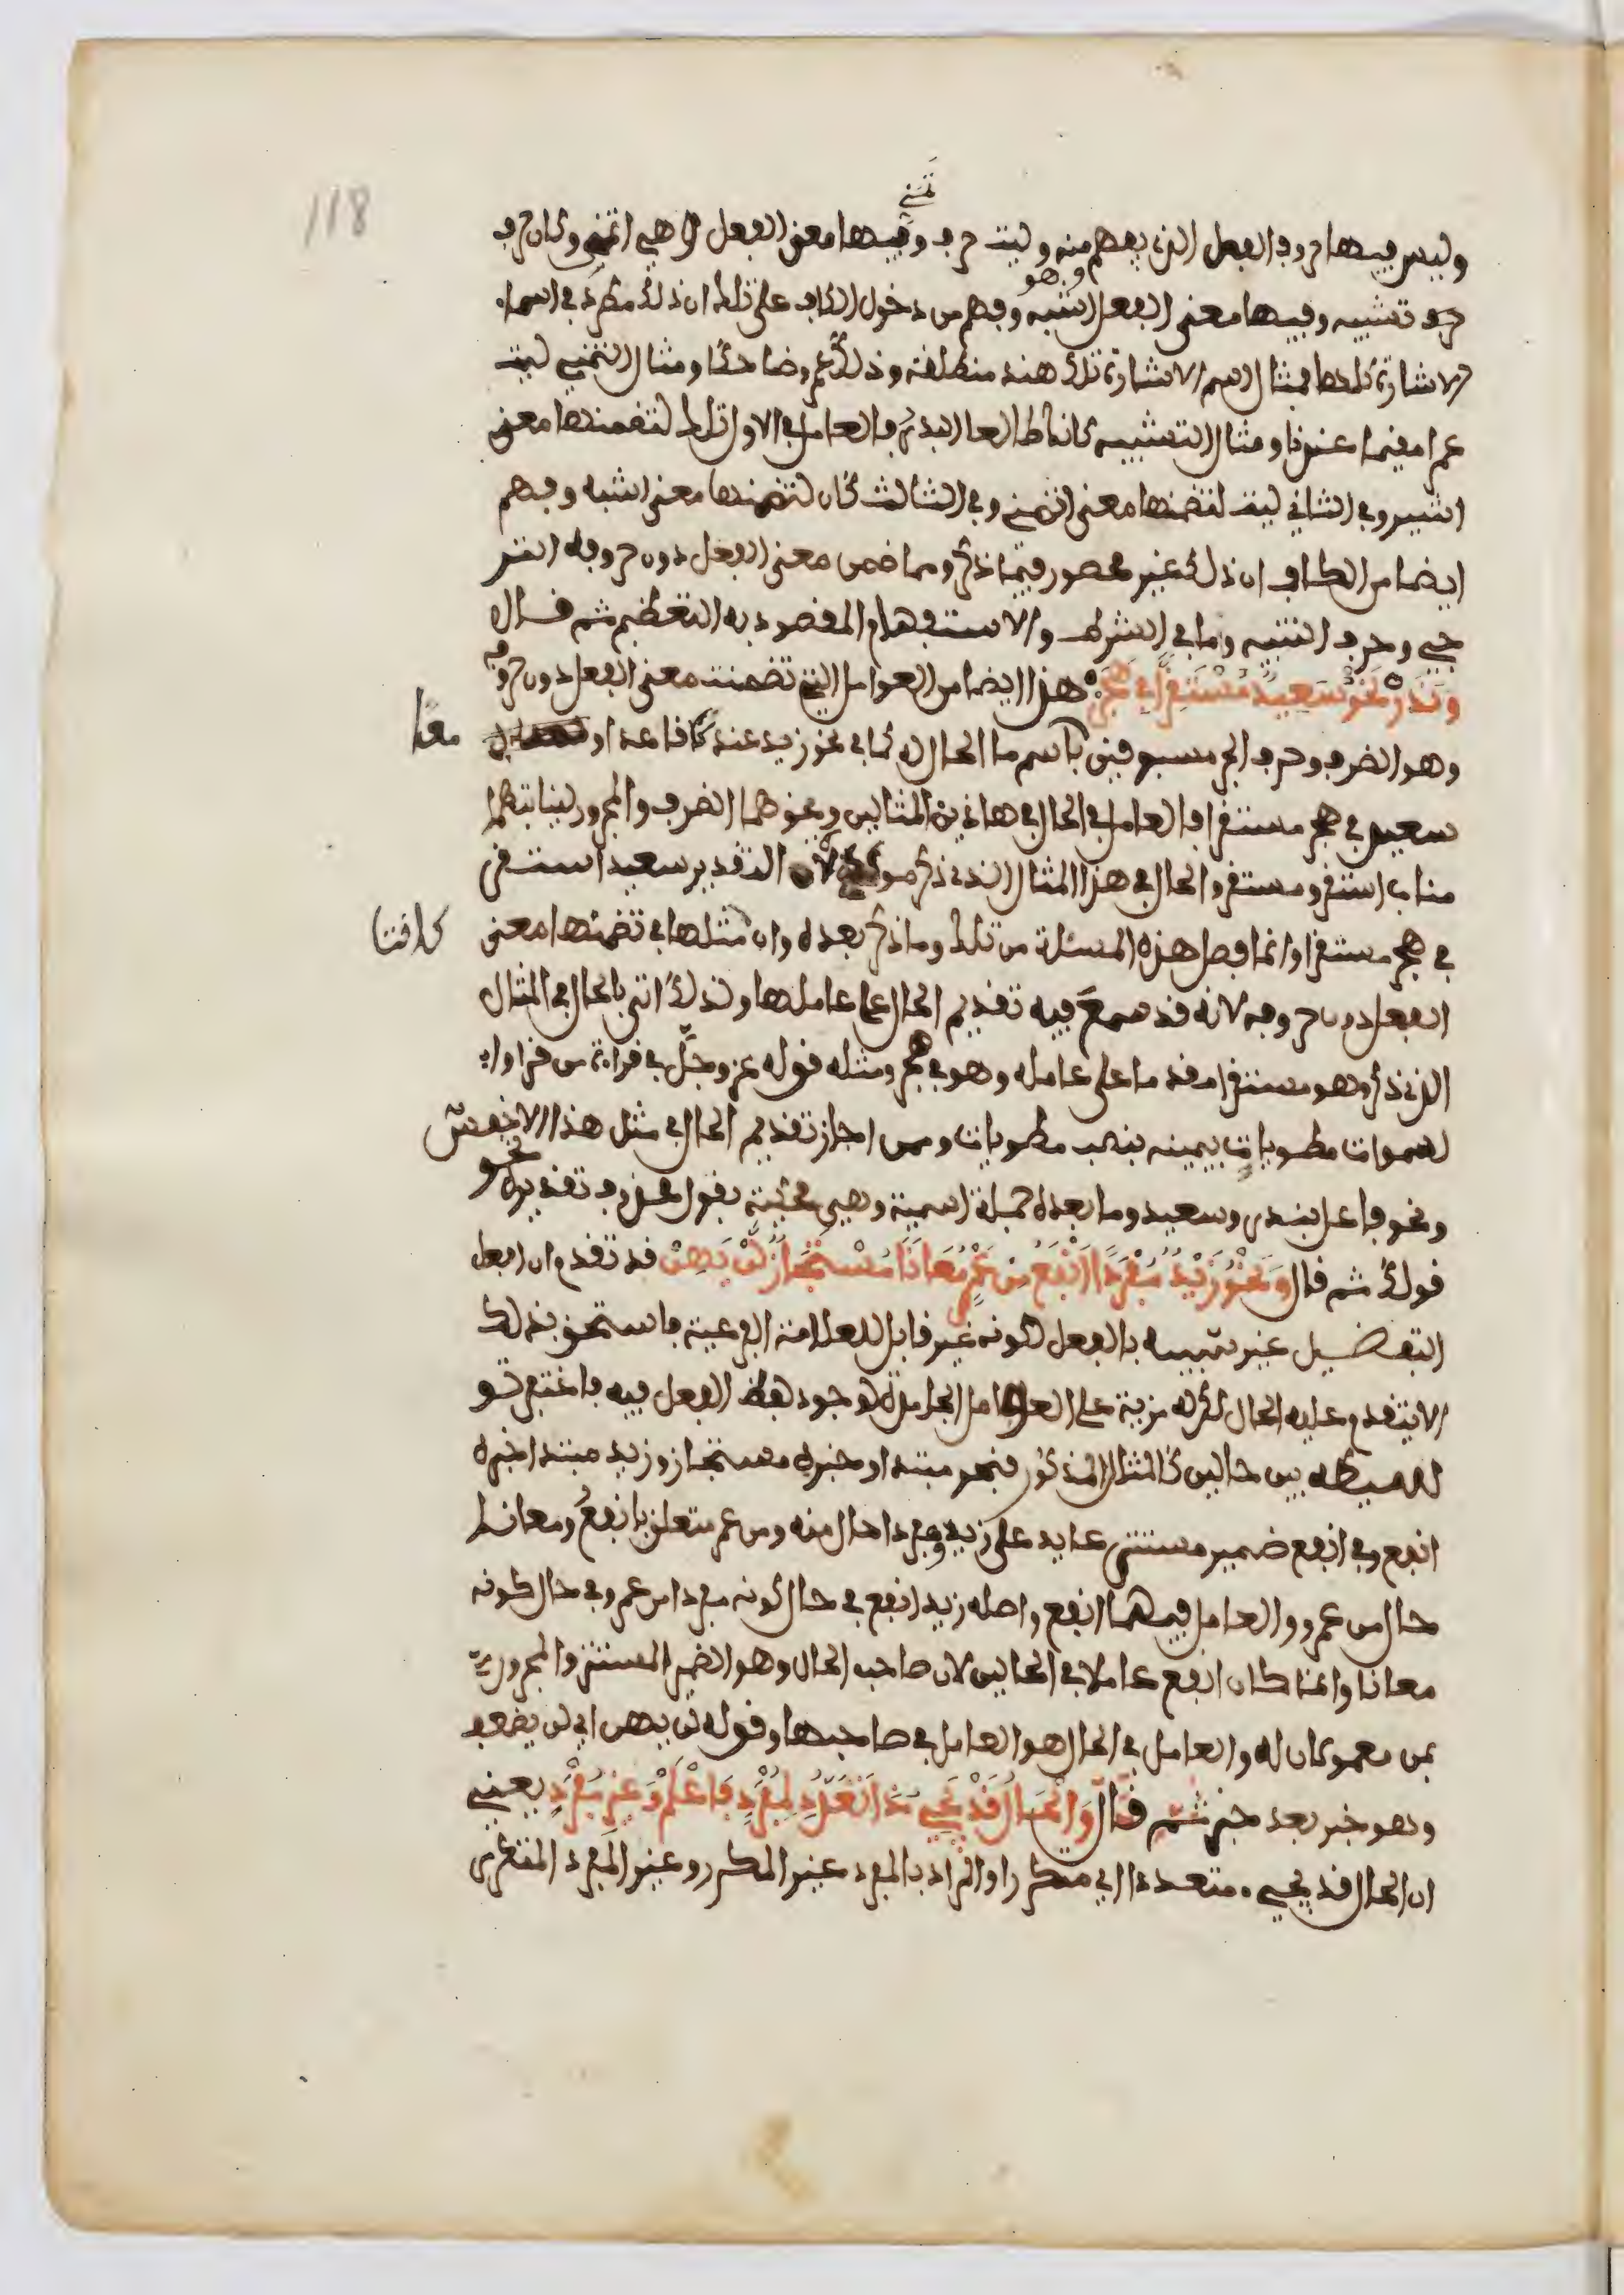 118
وليس فيها حروف الفعل الذي يفهم منه وليت حرف تمني وفيها معنى الفعل وهي اتمنى وكان حرف
حرف تشبيه وفيها معنى الفعل وهو اشبه وفهم من دخول الكاف على تلك ان ذلك مطرد في اسماء
الاشارة كلها فمثال اسم الاشارة تلك هند منطلقة وذلك عمرو ضاحكا ومثال التمني ليت
عمرا مقيما عندنا ومثال التشبيه كانك طالعا البدر فالعامل في الاول تلك لتضمنها معنى
اشير وفي الثاني ليت لتضمنها معنى اتمنى وفي الثالث كان لتضمنها معنى اشبه وفهم
ايضا من الكاف ان ذلك غير محصور فيما ذكر ومما ضمن معنى الفعل دون حروفه الترـ
ـجي وحرف التنبيه وما في الشرط والاستفهام المقصود به التعظيم ثم قال
وندر نحو سعيد مستقرا في هجر هذا ايضا من العوامل التي تضمنت معنى الفعل دون حروفه
وهو الظرف وحرف الجر مسبوقين باسم ما الحال له كما في نحو زيد عندك قاعدا و معا
سعيد في هجر مستقرا فالعامل في الحال في هاذين المثالين ونحوهما الظرف والمجرور لنيابتهما
مناب استقر ومستقر والحال في هذا المثال الذي ذكر موكدة لان التقدير سعيد استقر
في هجر مستقرا وانما فصل هذه المسئلة من تلك وما ذكر بعده وان مثلها في تضمنها معنى
الفعل دون حروفه لانه قد سمع فيه تقديم الحال على عاملها ولذلك اتى بالحال في المثال
الذي ذكر وهو مستقرا مقدما على عامله وهو في هجر ومثله قوله عز وجل في قراءة من قرا وا
لسموات مطويات بيمينه بنصب مطويات وممن اجاز تقديم الحال في مثل هذا الاخفش
ونحو فاعل بندر وسعيد وما بعده جملة اسمية وهي محكية بقول محذوف تقديره نحو
قولك ثم قال ونحو زيد مفردا انفع من عمرو معانا مستجاز لن يهن قد تقدم ان افعل
التفضيل غير شبيه بالفعل لكونه غير قابل للعلامة الفرعية فاستحق بذلك
الا يتقدم عليه الحال لكن له مزية على العوامل الجامدة لوجود لفظ الفعل فيه فاغتفر تو
لسيطه بين حالين كالمثال المذكور فنحو مبتدا وخبره مستجاز وزيد مبتدا خبره
انفع وفي انفع ضمير مستتر عايد على زيد ومفردا حال منه ومن عمرو متعلق بانفع ومعانا
حال من عمرو والعامل فيهما انفع واصله زيد انفع في حال كونه مفردا من عمرو في حال كونه
معانا وانما كان انفع عاملا في الحالين لان صاحب الحال وهو الضمير المستتر والمجرور
بمن معمولان له والعامل في الحال هو العامل في صاحبها وقوله لن يهن اي لن يضعف
وهو خبر بعد خبر ثم قال والحال قد يجيء ذا تعدد لمفرد فاعلم وغير مفرد يعني
ان الحال قد يجيء متعددا اي متكررا والمراد بالمفرد غير المكرر وغير المفرد